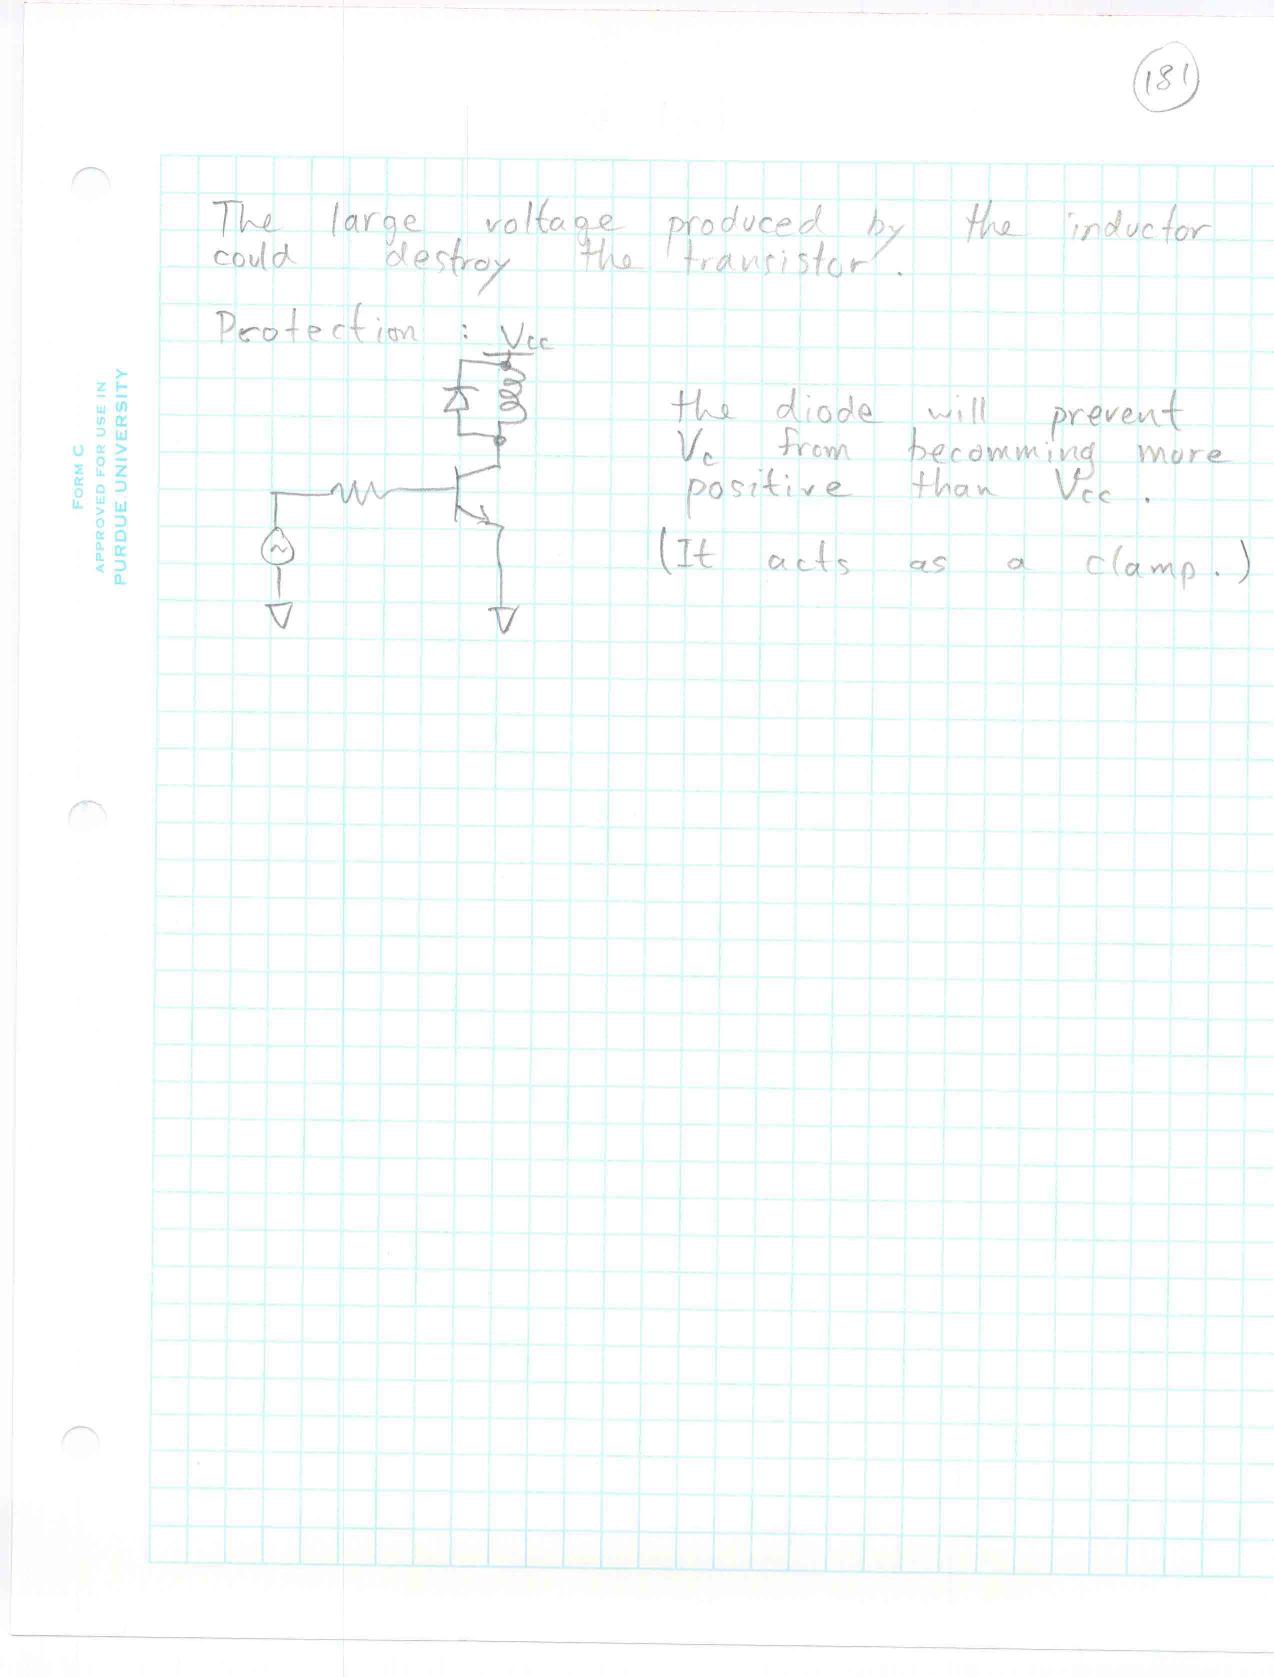 181
FORM C
APPROVED FOR USE IN
PURDUE UNIVERSITY
The large voltage produced by the inductor
could destroy the transistor.
Protection : Vcc
the diode will prevent
Vc from becomming more
positive than Vcc.
(It acts as a clamp.)